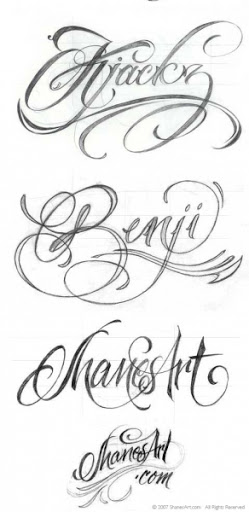 Benji
ShanesArt
ShanesArt
.com
© 2007 ShanesArt.com All Rights Reserved